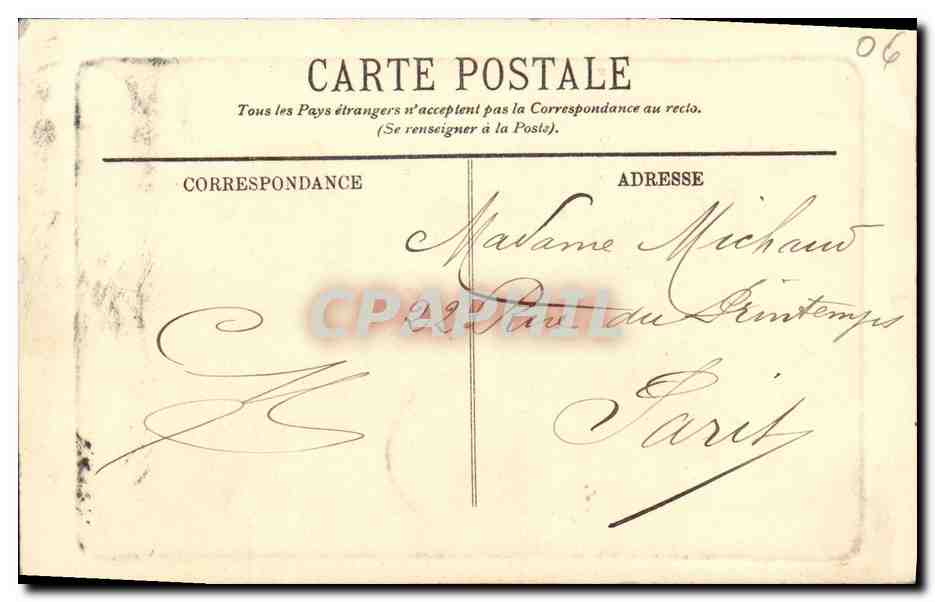 06
CARTE POSTALE
Tous les Pays étrangers n'acceptent pas la Correspondance au recto.
(Se renseigner à la Poste).
CORRESPONDANCE
ADRESSE
Madame Michaud
22 Rue du Printemps
Paris
CPAPHIL